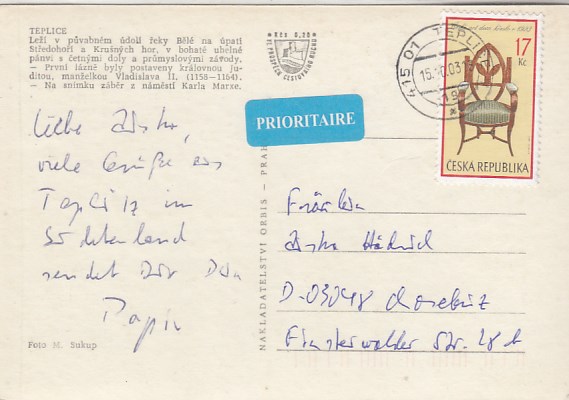 TEPLICE
Leží v půvabném údolí řeky Bělé na úpatí
Středohoří a Krušných hor, v bohaté uhelné
pánvi s četnými doly a průmyslovými závody.
— První lázně byly postaveny královnou Ju-
ditou, manželkou Vladislava II. (1158–1164).
— Na snímku záběr z náměstí Karla Marxe.
Kčs 0,20
VE PROSPĚCH CESTOVNÍHO RUCHU
415 01 TEPLICE
17
Kč
ČESKÁ REPUBLIKA
PRIORITAIRE
Liebe
viele Grüße aus
Teplitz im
Sudetenland
sendet Dir Dein
Papi
Foto M. Sukup
NAKLADATELSTVÍ ORBIS — PRAHA
Fräulein
D-03048 Chosebuz
Finsterwalder Str.